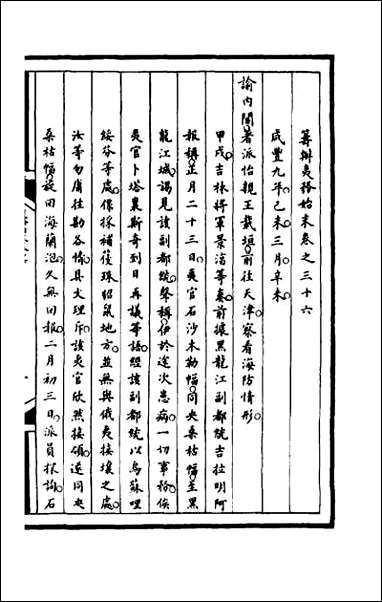 籌辦夷務始末卷之三十六
咸豐九年己未三月辛未
諭內閣著派怡親王載垣前往天津察看海防情形
甲戌吉林將軍景淳等奏前據黑龍江副都統吉拉明阿
報稱正月二十三日夷官石沙木勒幅同夾桑枯幅至黑
龍江城謁見該副都統聲稱伊於途次患病一切事務俟
夷官卜塔裏斯奇到日再議等語經該副都統以烏蘇哩
綏芬等處係採補葠珠貂鼠地方並無與俄夷接壤之處
汝等勿庸往勘各情具文理斥該夷官欣然接領遂同夾
桑枯幅旋回海蘭泡久無回報二月初三日派員探詢石